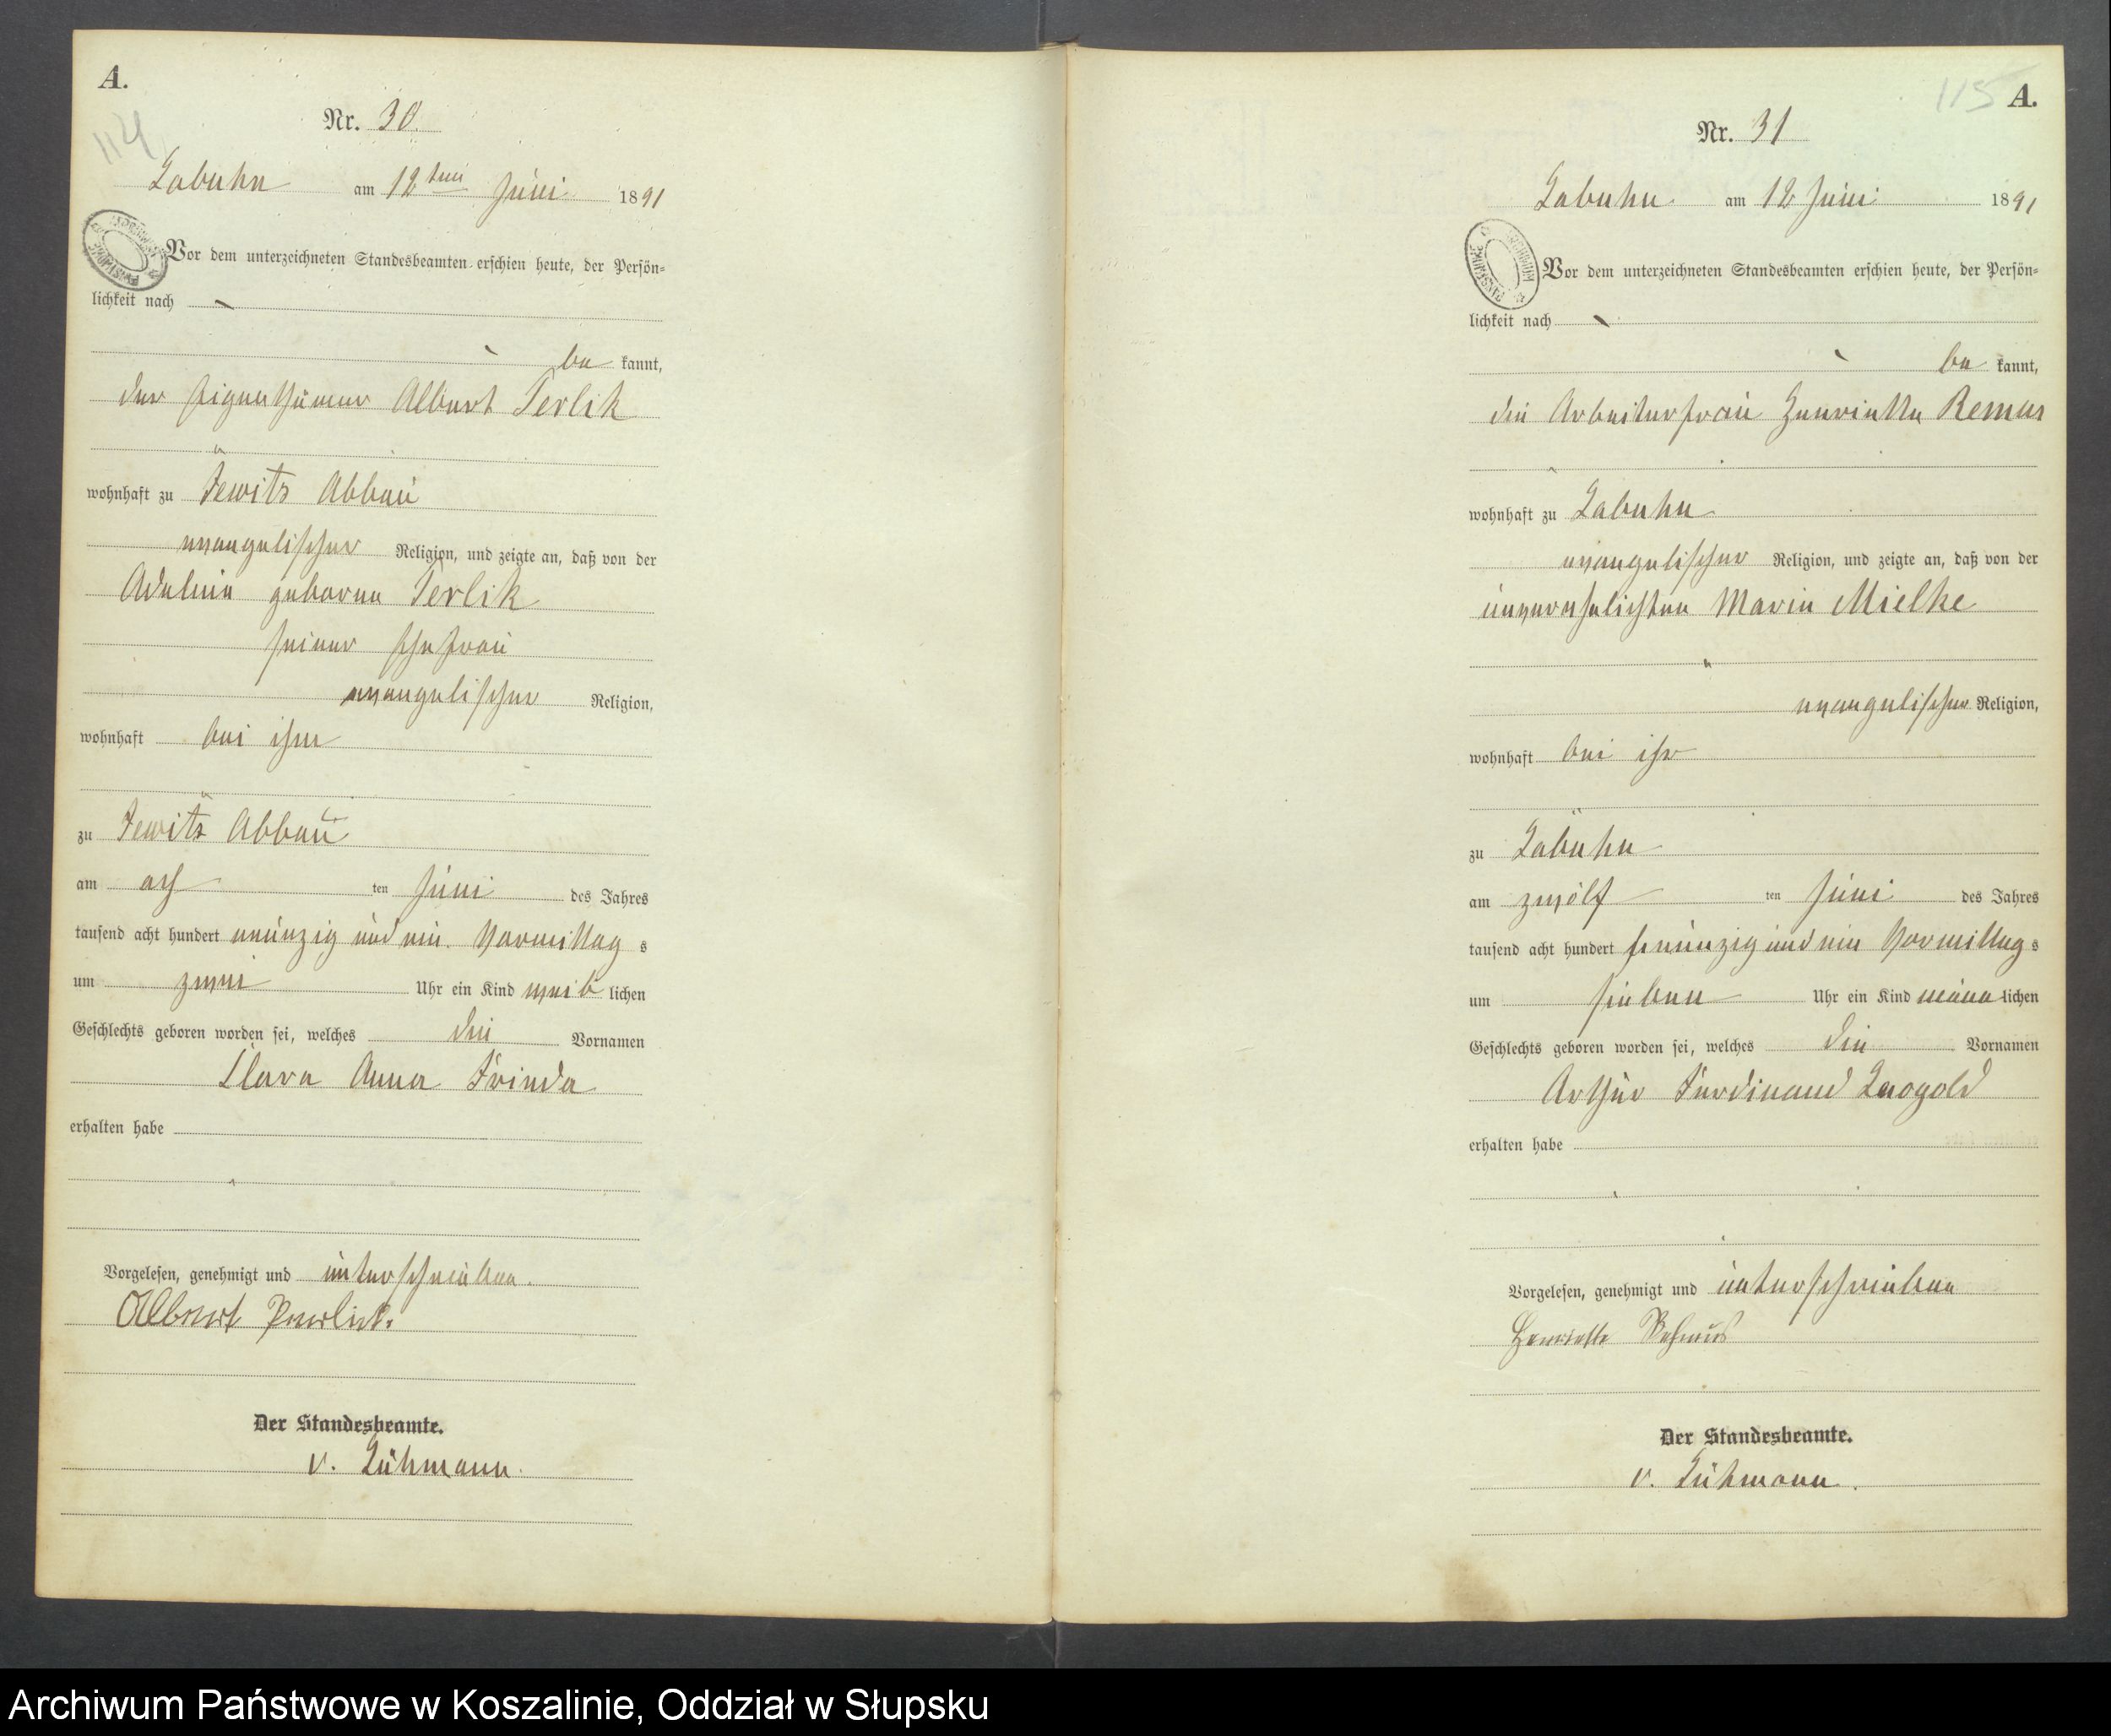 A.
114
Nr. 30.
Labuhn am 12ten Juni 1891
Vor dem unterzeichneten Standesbeamten erschien heute, der Persön=
lichkeit nach
be kannt,
der Eigenthümer Albert Perlik
wohnhaft zu Jewitz Abbau
evangelischer Religion, und zeigte an, daß von der
geborene Perlik
seiner Ehefrau
evangelischer Religion,
wohnhaft bei ihm
zu Jewitz Abbau
am ach ten Juni des Jahres
tausend acht hundert neunzig und ein Vormittag s
um zwei Uhr ein Kind weib lichen
Geschlechts geboren worden sei, welches die Vornamen
Clara Anna
erhalten habe
Vorgelesen, genehmigt und unterschrieben.
Albert
Der Standesbeamte.
v. Lühmann.
115
A.
Nr. 31
Labuhn am 12 Juni 1891
Vor dem unterzeichneten Standesbeamten erschien heute, der Persön=
lichkeit nach
be kannt,
die Arbeiterfrau Henriette Remus
wohnhaft zu Labuhn
evangelischer Religion, und zeigte an, daß von der
unverehelichten Marie Mielke
evangelischer Religion,
wohnhaft bei ihr
zu Labuhn
am zwölf ten Juni des Jahres
tausend acht hundert neunzig und ein Vormittag s
um sieben Uhr ein Kind männ lichen
Geschlechts geboren worden sei, welches die Vornamen
Arthur Ferdinand Leopold
erhalten habe
Vorgelesen, genehmigt und unterschrieben
Henriette
Der Standesbeamte.
v. Lühmann.
Archiwum Państwowe w Koszalinie, Oddział w Słupsku